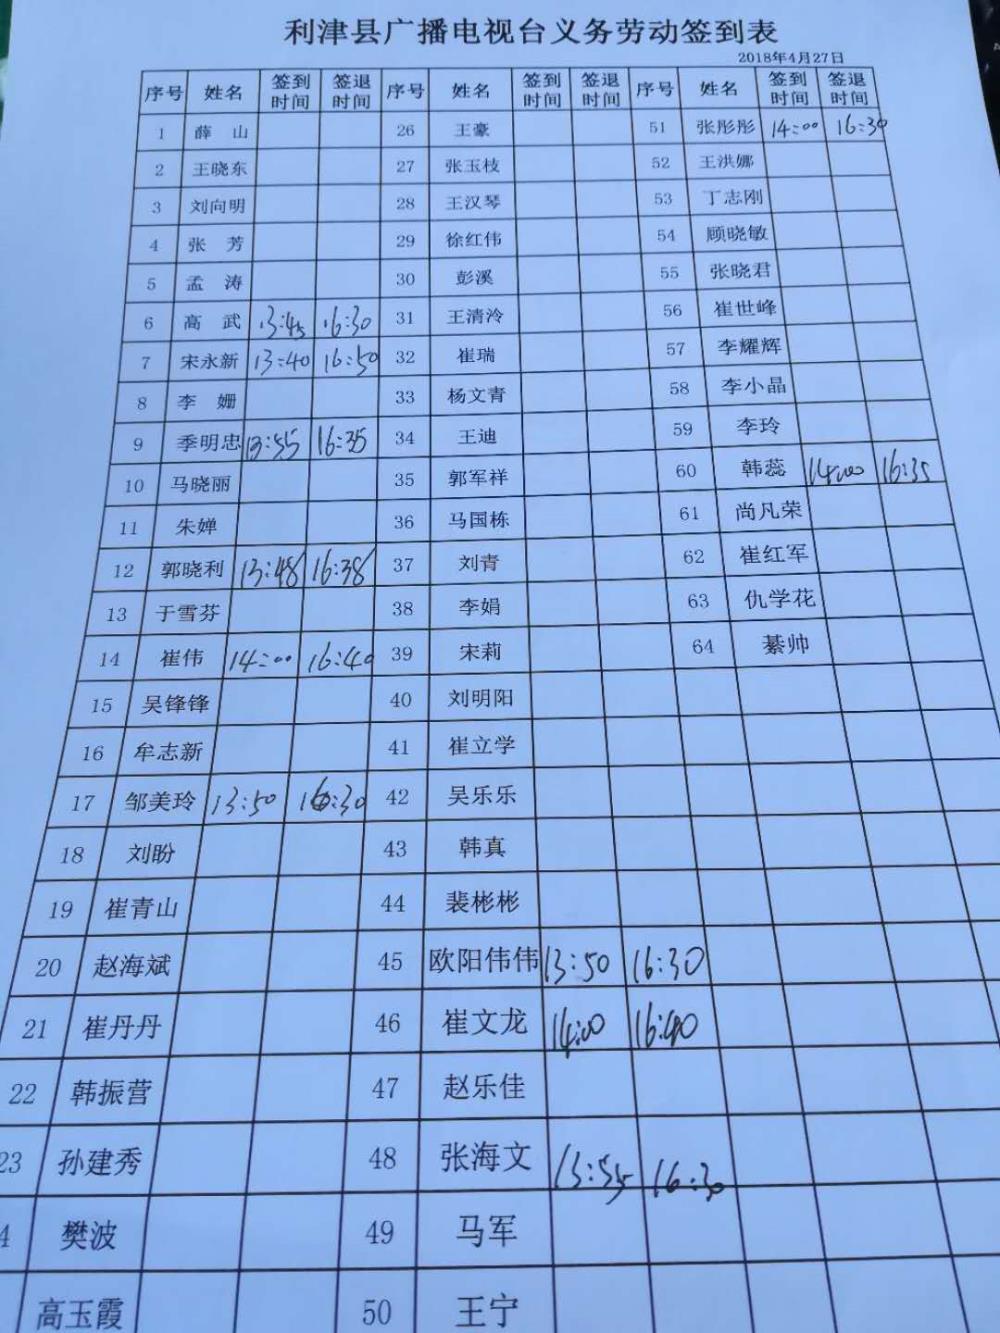 利津县广播电视台义务劳动签到表
2018年4月27日
序号 姓名 签到时间 签退时间 序号 姓名 签到时间 签退时间 序号 姓名 签到时间 签退时间
1 薛 山 26 王豪 51 张彤彤 14:00 16:30
2 王晓东 27 张玉枝 52 王洪娜
3 刘向明 28 王汉琴 53 丁志刚
4 张 芳 29 徐红伟 54 顾晓敏
5 孟 涛 30 彭溪 55 张晓君
6 高 武 13:45 16:30 31 王清泠 56 崔世峰
7 宋永新 13:40 16:50 32 崔瑞 57 李耀辉
8 李 姗 33 杨文青 58 李小晶
9 季明忠 13:55 16:35 34 王迪 59 李玲
10 马晓丽 35 郭军祥 60 韩蕊 14:00 16:35
11 朱婵 36 马国栋 61 尚凡荣
12 郭晓利 13:48 16:38 37 刘青 62 崔红军
13 于雪芬 38 李娟 63 仇学花
14 崔伟 14:00 16:40 39 宋莉 64 綦帅
15 吴锋锋 40 刘明阳
16 牟志新 41 崔立学
17 邹美玲 13:50 16:30 42 吴乐乐
18 刘盼 43 韩真
19 崔青山 44 裴彬彬
20 赵海斌 45 欧阳伟伟 13:50 16:30
21 崔丹丹 46 崔文龙 14:00 16:40
22 韩振营 47 赵乐佳
23 孙建秀 48 张海文 13:55 16:30
4 樊波 49 马军
高玉霞 50 王宁